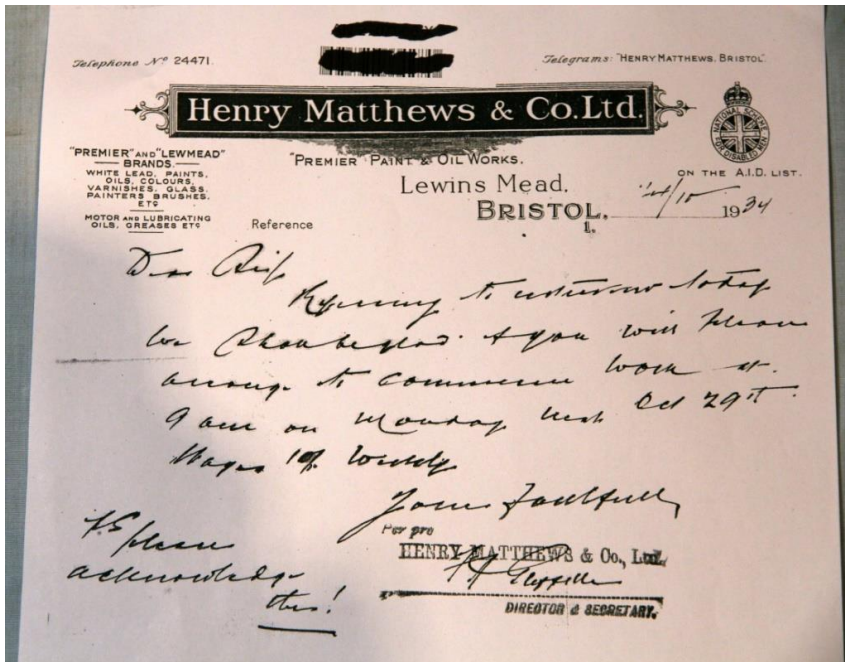 Telephone Nº 24471.
Telegrams: "HENRY MATTHEWS, BRISTOL".
Henry Matthews & Co. Ltd.
NATIONAL SCHEME FOR DISABLED MEN
"PREMIER" AND "LEWMEAD"
BRANDS.
WHITE LEAD, PAINTS,
OILS, COLOURS,
VARNISHES, GLASS,
PAINTERS BRUSHES,
ETC
MOTOR AND LUBRICATING
OILS, GREASES ETC
"PREMIER" PAINT & OIL WORKS.
ON THE A.I.D. LIST.
Lewins Mead,
BRISTOL,
1.
/10 1934
Reference
Dear Sir
Referring to interview today
we shall be glad if you will please
arrange to commence work at
9 am on Monday next Oct 29th
Wages weekly
Yours faithfully
Per pro
HENRY MATTHEWS & Co., Ltd.
DIRECTOR & SECRETARY.
P.S. please
acknowledge
this!